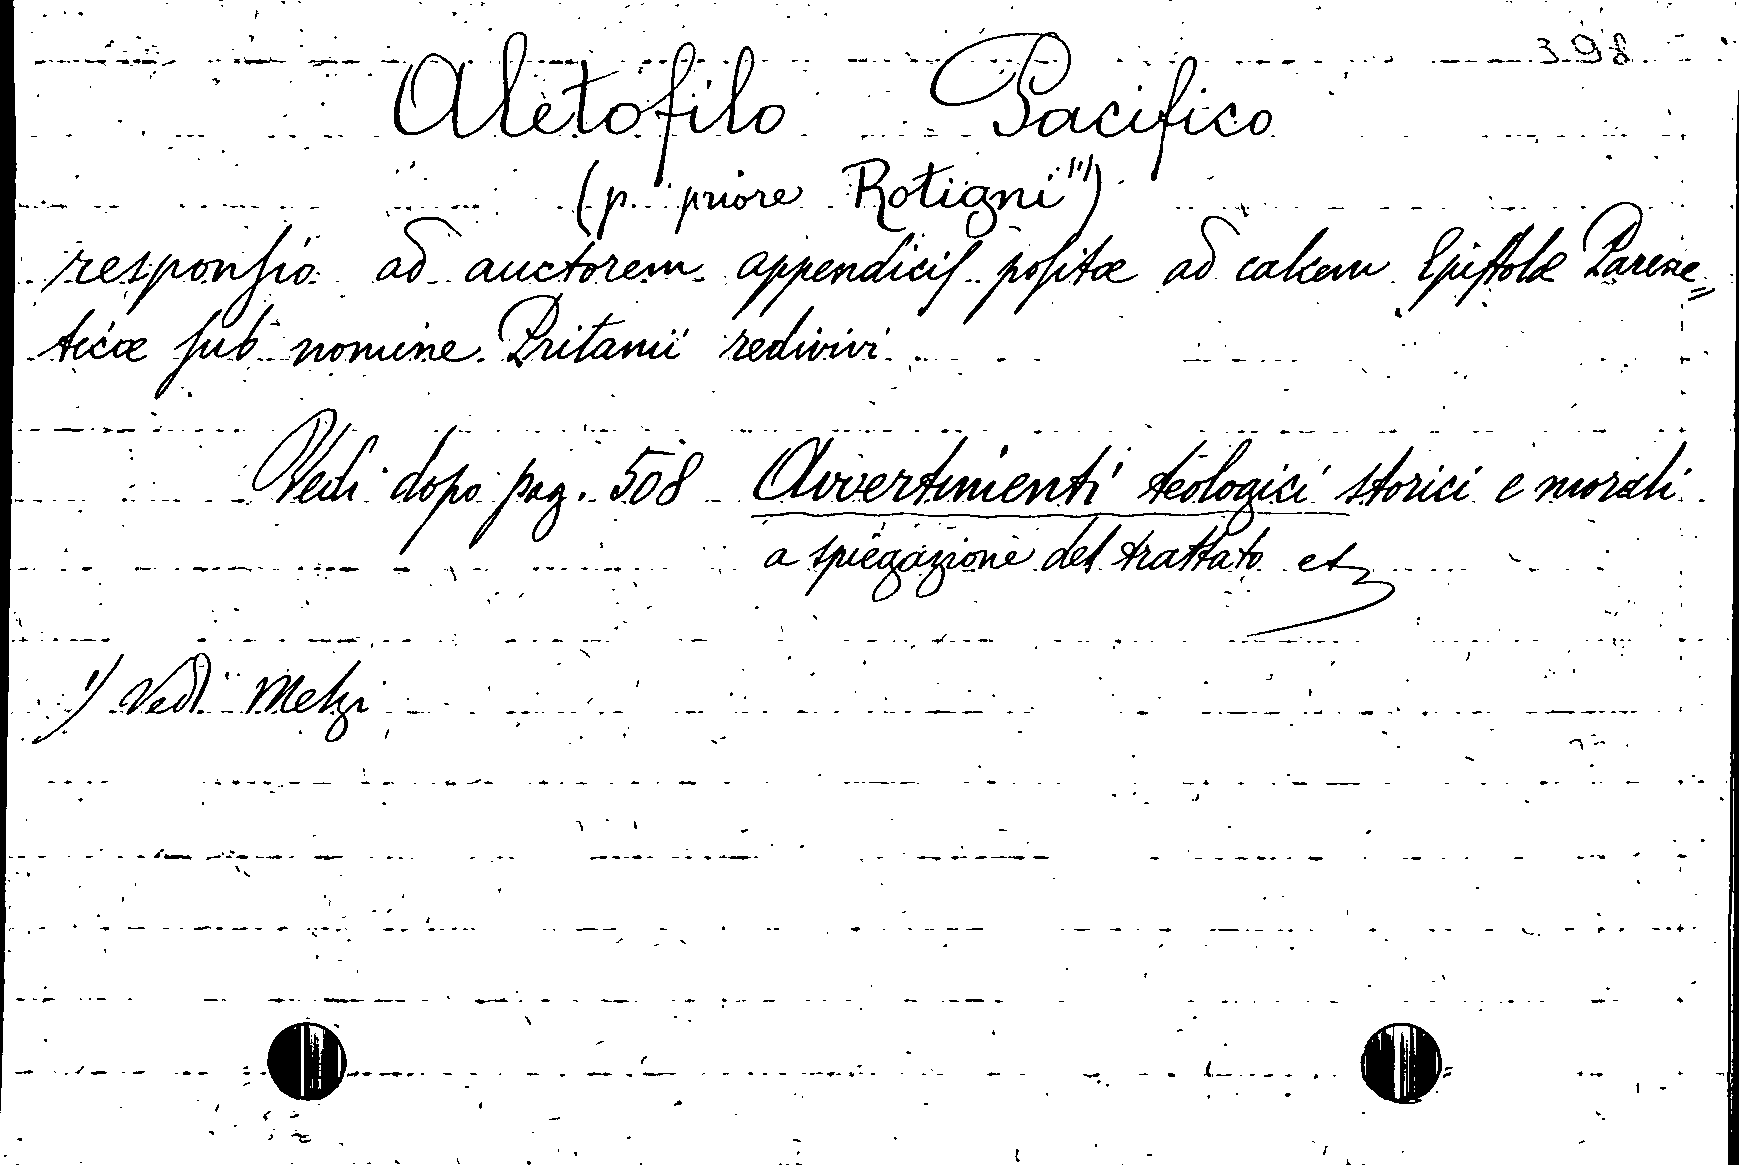 398
Aletofilo Pacifico
(p. priore Rotigni 1))
responsio ad auctorem appendicis positæ ad calcem Epistolæ Parene=
ticæ sub nomine Pritanii redivivi
Vedi dopo pag. 508 Avvertimenti teologici storici e morali
a spiegazione del trattato etz
1) Vedi Melzi